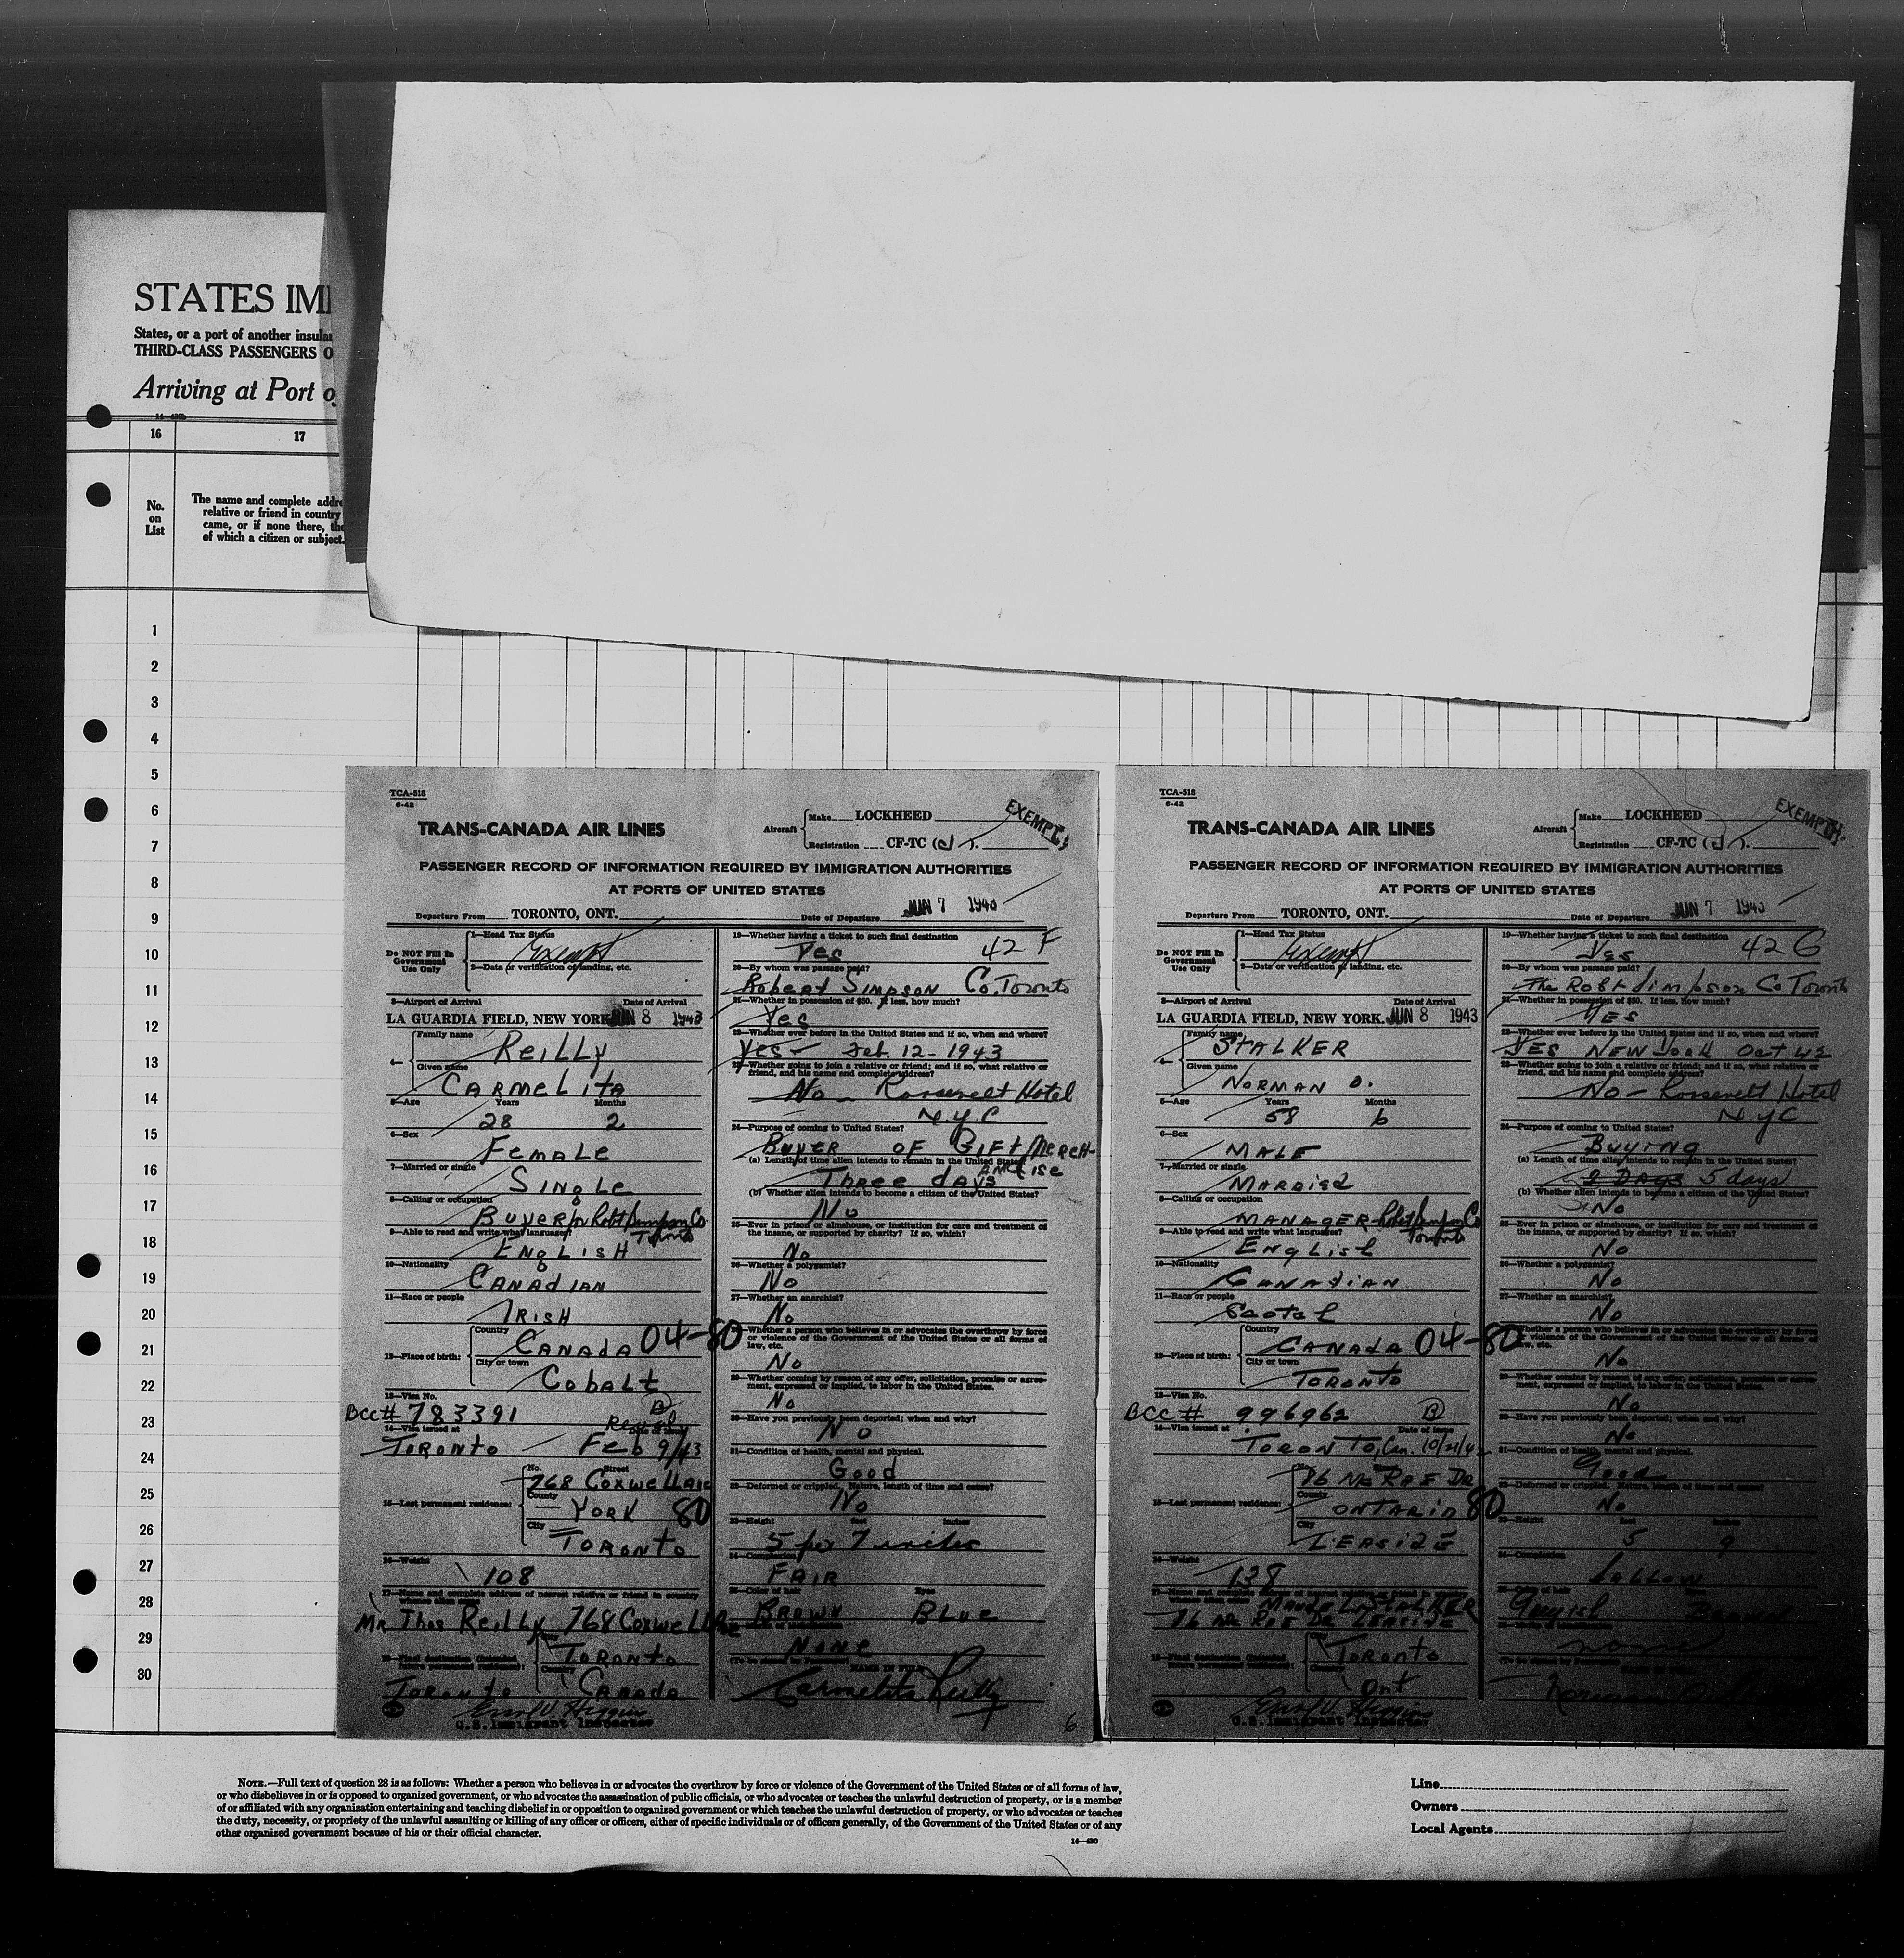 STATES IMI
States, or a port of another insular
THIRD-CLASS PASSENGERS O
Arriving at Port o
16 17
No.
on
List
The name and complete addre
relative or friend in country
came, or if none there, the
of which a citizen or subject.
1
2
3
4
5
6
7
8
9
10
11
12
13
14
15
16
17
18
19
20
21
22
23
24
25
26
27
28
29
30
TCA-518
6-42
TRANS-CANADA AIR LINES
Aircraft
Make LOCKHEED
Registration CF-TC
EXEMPT
PASSENGER RECORD OF INFORMATION REQUIRED BY IMMIGRATION AUTHORITIES
AT PORTS OF UNITED STATES
Departure From TORONTO, ONT.
Date of Departure JUN 7 1943
Do NOT Fill In
Government
Use Only
1—Head Tax Status
Exempt
2—Data or verification of landing, etc.
3—Airport of Arrival Date of Arrival
LA GUARDIA FIELD, NEW YORK JUN 8 1943
4—
Family name
REILLY
Given name
CARMELITA
5—Age Years Months
28 2
6—Sex
FEMALE
7—Married or single
SINGLE
8—Calling or occupation
BUYER for Robt Simpson Co
Toronto
9—Able to read and write what languages?
ENGLISH
10—Nationality
CANADIAN
11—Race or people
IRISH
12—Place of birth:
Country
CANADA 04-80
City or town
COBALT
13—Visa No.
BCC# 783391
14—Visa issued at
TORONTO Feb 9/43
15—Last permanent residence:
No. Street
768 COXWELL AVE
County
YORK 80
City
TORONTO
16—Weight
108
17—Name and complete address of nearest relative or friend in country
MR Thos Reilly 768 Coxwell Ave
18—Final destination (Intended
future permanent residence):
City
TORONTO
Country
Toronto CANADA
U.S. Immigrant Inspector
19—Whether having a ticket to such final destination
Yes 42 F
20—By whom was passage paid?
Robert Simpson Co. Toronto
21—Whether in possession of $50. If less, how much?
Yes
22—Whether ever before in the United States and if so, when and where?
Yes - Feb. 12 - 1943
23—Whether going to join a relative or friend; and if so, what relative or
friend, and his name and complete address?
No - Roosevelt Hotel
N.Y.C
24—Purpose of coming to United States?
BUYER OF GIFT MERCH-
ANDISE
(a) Length of time alien intends to remain in the United States?
Three days
(b) Whether alien intends to become a citizen of the United States?
No
25—Ever in prison or almshouse, or institution for care and treatment of
the insane, or supported by charity? If so, which?
No
26—Whether a polygamist?
No
27—Whether an anarchist?
No
28—Whether a person who believes in or advocates the overthrow by force
or violence of the Government of the United States or all forms of
law, etc.
No
29—Whether coming by reason of any offer, solicitation, promise or agree-
ment, expressed or implied, to labor in the United States.
No
30—Have you previously been deported; when and why?
No
31—Condition of health, mental and physical.
Good
32—Deformed or crippled. Nature, length of time and cause?
No
33—Height feet inches
5 7 inches
34—Complexion
FAIR
35—Color of hair Eyes
BROWN BLUE
NONE
(To be signed by Passenger) NAME IN FULL
Carmelita Reilly
6
TCA-518
6-42
TRANS-CANADA AIR LINES
Aircraft
Make LOCKHEED
Registration CF-TC
EXEMPT
PASSENGER RECORD OF INFORMATION REQUIRED BY IMMIGRATION AUTHORITIES
AT PORTS OF UNITED STATES
Departure From TORONTO, ONT.
Date of Departure JUN 7 1943
Do NOT Fill In
Government
Use Only
1—Head Tax Status
Exempt
2—Data or verification of landing, etc.
3—Airport of Arrival Date of Arrival
LA GUARDIA FIELD, NEW YORK. JUN 8 1943
4—
Family name
STALKER
Given name
NORMAN D.
5—Age Years Months
58 6
6—Sex
MALE
7—Married or single
MARRIED
8—Calling or occupation
MANAGER Robt Simpson Co
Toronto
9—Able to read and write what languages?
ENGLISH
10—Nationality
CANADIAN
11—Race or people
Scotch
12—Place of birth:
Country
CANADA 04-80
City or town
TORONTO
13—Visa No.
BCC # 996962 B
14—Visa issued at Date of Issue
TORONTO, Can. 10/21/42
15—Last permanent residence:
86 McRAE DR
County
ONTARIO 80
City
LEASIDE
16—Weight
138
17—Name and complete address of nearest relative or friend in country
MAUDE L. STALKER
McRAE DR LEASIDE
18—Final destination (Intended
future permanent residence):
City
TORONTO
Country
Ont
U.S. Immigrant Inspector
19—Whether having a ticket to such final destination
Yes 42 G
20—By whom was passage paid?
The Robt Simpson Co Toronto
21—Whether in possession of $50. If less, how much?
YES
22—Whether ever before in the United States and if so, when and where?
YES NEW York Oct 42
23—Whether going to join a relative or friend; and if so, what relative or
friend, and his name and complete address?
No - Roosevelt Hotel
N.Y.C
24—Purpose of coming to United States?
BUYING
(a) Length of time alien intends to remain in the United States?
2 Days 5 days
(b) Whether alien intends to become a citizen of the United States?
No
25—Ever in prison or almshouse, or institution for care and treatment of
the insane, or supported by charity? If so, which?
No
26—Whether a polygamist?
No
27—Whether an anarchist?
No
28—Whether a person who believes in or advocates the overthrow by force
or violence of the Government of the United States or all forms of
law, etc.
No
29—Whether coming by reason of any offer, solicitation, promise or agree-
ment, expressed or implied, to labor in the United States.
No
30—Have you previously been deported; when and why?
No
31—Condition of health, mental and physical.
Good
32—Deformed or crippled. Nature, length of time and cause?
No
33—Height feet inches
5 9
34—Complexion
Sallow
Greyish
none
Norman
NOTE.—Full text of question 28 is as follows: Whether a person who believes in or advocates the overthrow by force or violence of the Government of the United States or of all forms of law,
or who disbelieves in or is opposed to organized government, or who advocates the assassination of public officials, or who advocates or teaches the unlawful destruction of property, or is a member
of or affiliated with any organization entertaining and teaching disbelief in or opposition to organized government or which teaches the unlawful destruction of property, or who advocates or teaches
the duty, necessity, or propriety of the unlawful assaulting or killing of any officer or officers, either of specific individuals or of officers generally, of the Government of the United States or of any
other organized government because of his or their official character.
14—430
Line
Owners
Local Agents